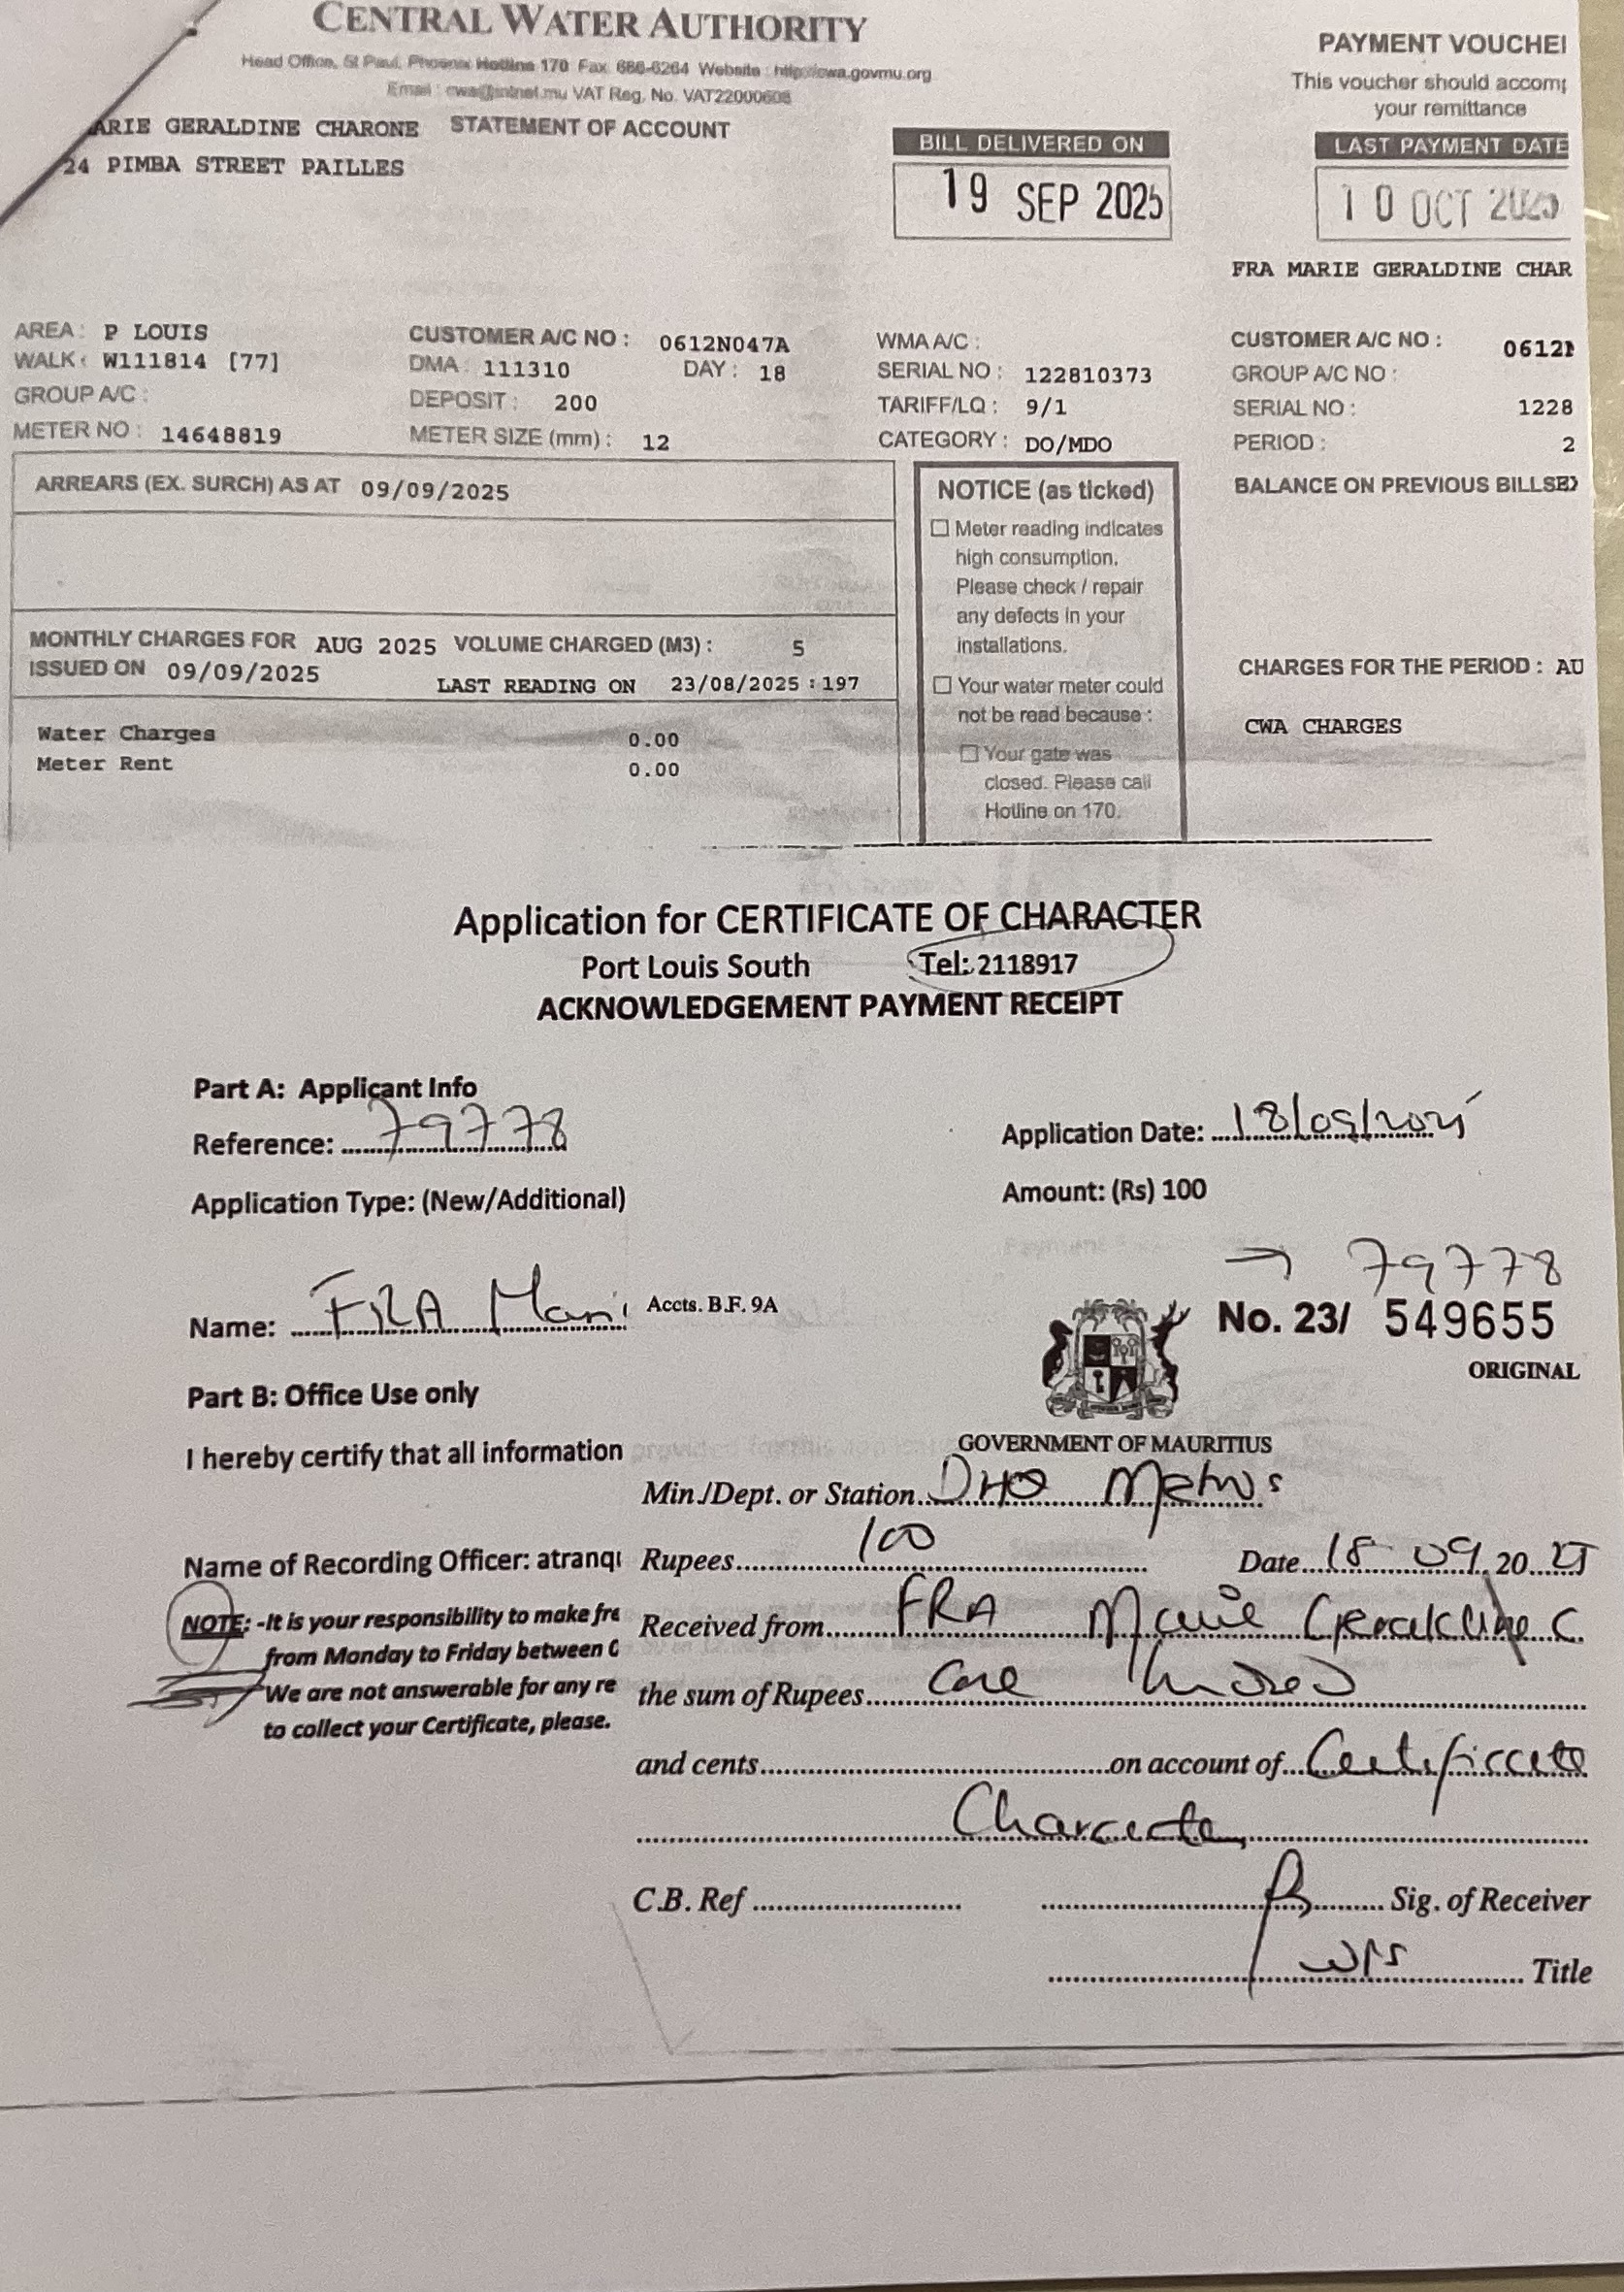 CENTRAL WATER AUTHORITY
Head Office, St Paul, Phoenix Hotline 170 Fax 686-6264 Website : http://cwa.govmu.org
Email : cwa@intnet.mu VAT Reg. No. VAT22000608
ARIE GERALDINE CHARONE STATEMENT OF ACCOUNT
24 PIMBA STREET PAILLES
BILL DELIVERED ON
19 SEP 2025
PAYMENT VOUCHE
This voucher should accom
your remittance
LAST PAYMENT DATE
10 OCT 2025
FRA MARIE GERALDINE CHAR
AREA : P LOUIS
WALK : W111814 [77]
GROUP A/C :
METER NO : 14648819
CUSTOMER A/C NO : 0612N047A
DMA : 111310 DAY : 18
DEPOSIT : 200
METER SIZE (mm) : 12
WMA A/C :
SERIAL NO : 122810373
TARIFF/LQ : 9/1
CATEGORY : DO/MDO
CUSTOMER A/C NO : 0612
GROUP A/C NO :
SERIAL NO : 1228
PERIOD : 2
ARREARS (EX. SURCH) AS AT 09/09/2025
MONTHLY CHARGES FOR AUG 2025 VOLUME CHARGED (M3) : 5
ISSUED ON 09/09/2025
LAST READING ON 23/08/2025 : 197
Water Charges 0.00
Meter Rent 0.00
NOTICE (as ticked)
Meter reading indicates
high consumption.
Please check / repair
any defects in your
installations.
Your water meter could
not be read because :
Your gate was
closed. Please call
Hotline on 170.
BALANCE ON PREVIOUS BILLS
CHARGES FOR THE PERIOD : AU
CWA CHARGES
Application for CERTIFICATE OF CHARACTER
Port Louis South Tel: 2118917
ACKNOWLEDGEMENT PAYMENT RECEIPT
Part A: Applicant Info
Reference: 79778
Application Date: 18/09/2025
Application Type: (New/Additional)
Amount: (Rs) 100
→ 79778
Name: FRA Mari
Accts. B.F. 9A
No. 23/ 549655
ORIGINAL
Part B: Office Use only
I hereby certify that all information
GOVERNMENT OF MAURITIUS
Min./Dept. or Station DHQ Metro S
Name of Recording Officer: atranq
Rupees 100 Date 18 09 20 25
NOTE: -It is your responsibility to make fre
from Monday to Friday between 0
We are not answerable for any re
to collect your Certificate, please.
Received from FRA Marie Geraldine C.
the sum of Rupees One hundred
and cents on account of Certificate
Character
C.B. Ref Sig. of Receiver
WPS Title